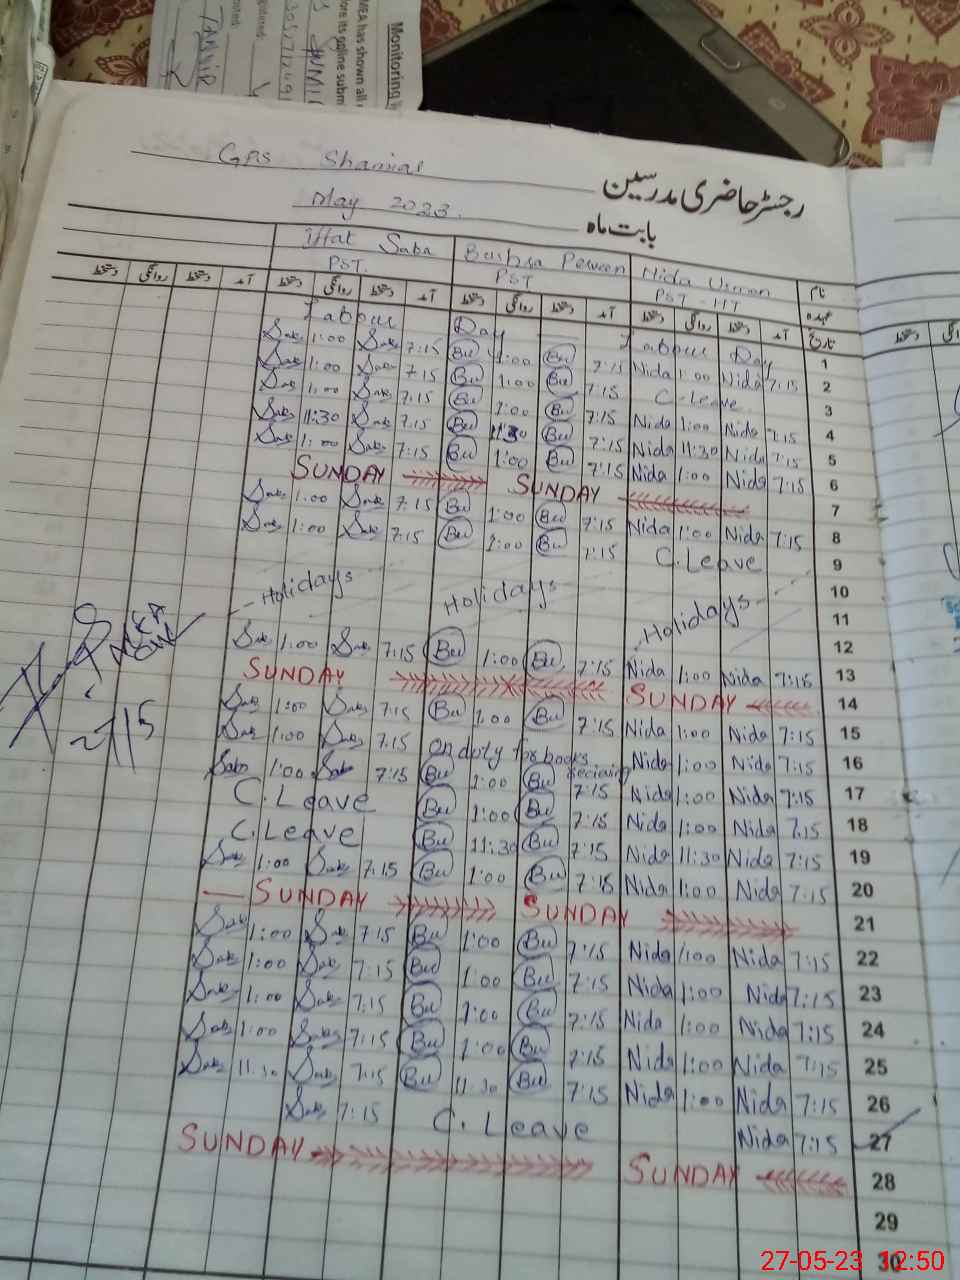 Monitoring
MEA has shown all
GPS Shamias
رجسٹر حاضری مدرسین
May 2023.
بابت ماہ
Iffat Saba Bushra Perveen Nida Usman نام
PST. PST PST-HT عہدہ
دستخط روانگی دستخط آمد دستخط روانگی دستخط آمد دستخط روانگی دستخط آمد دستخط روانگی دستخط آمد تاریخ
Labour Day Labour Day 1
Saba 1:00 Saba 7:15 Bu 1:00 Bu 7:15 Nida 1:00 Nida 7:15 2
Saba 1:00 Saba 7:15 Bu 1:00 Bu 7:15 C.Leave 3
Saba 1:00 Saba 7:15 Bu 1:00 Bu 7:15 Nida 1:00 Nida 7:15 4
Saba 11:30 Saba 7:15 Bu 11:30 Bu 7:15 Nida 11:30 Nida 7:15 5
Saba 1:00 Saba 7:15 Bu 1:00 Bu 7:15 Nida 1:00 Nida 7:15 6
SUNDAY SUNDAY 7
Saba 1:00 Saba 7:15 Bu 1:00 Bu 7:15 Nida 1:00 Nida 7:15 8
Saba 1:00 Saba 7:15 Bu 1:00 Bu 7:15 C.Leave 9
10
Holidays Holidays Holidays 11
12
Saba 1:00 Saba 7:15 Bu 1:00 Bu 7:15 Nida 1:00 Nida 7:15 13
SUNDAY SUNDAY 14
Saba 1:00 Saba 7:15 Bu 1:00 Bu 7:15 Nida 1:00 Nida 7:15 15
Saba 1:00 Saba 7:15 on doty for books reciaing Nida 1:00 Nida 7:15 16
Saba 1:00 Saba 7:15 Bu 1:00 Bu 7:15 Nida 1:00 Nida 7:15 17
C.Leave Bu 1:00 Bu 7:15 Nida 1:00 Nida 7:15 18
C.Leave Bu 11:30 Bu 7:15 Nida 11:30 Nida 7:15 19
Saba 1:00 Saba 7:15 Bu 1:00 Bu 7:15 Nida 1:00 Nida 7:15 20
SUNDAY SUNDAY 21
Saba 1:00 Saba 7:15 Bu 1:00 Bu 7:15 Nida 1:00 Nida 7:15 22
Saba 1:00 Saba 7:15 Bu 1:00 Bu 7:15 Nida 1:00 Nida 7:15 23
Saba 1:00 Saba 7:15 Bu 1:00 Bu 7:15 Nida 1:00 Nida 7:15 24
Saba 1:00 Saba 7:15 Bu 1:00 Bu 7:15 Nida 1:00 Nida 7:15 25
Saba 11:30 Saba 7:15 Bu 11:30 Bu 7:15 Nida 1:00 Nida 7:15 26
Saba 7:15 C. Leave Nida 7:15 27
SUNDAY SUNDAY 28
29
30
27-05-23 12:50